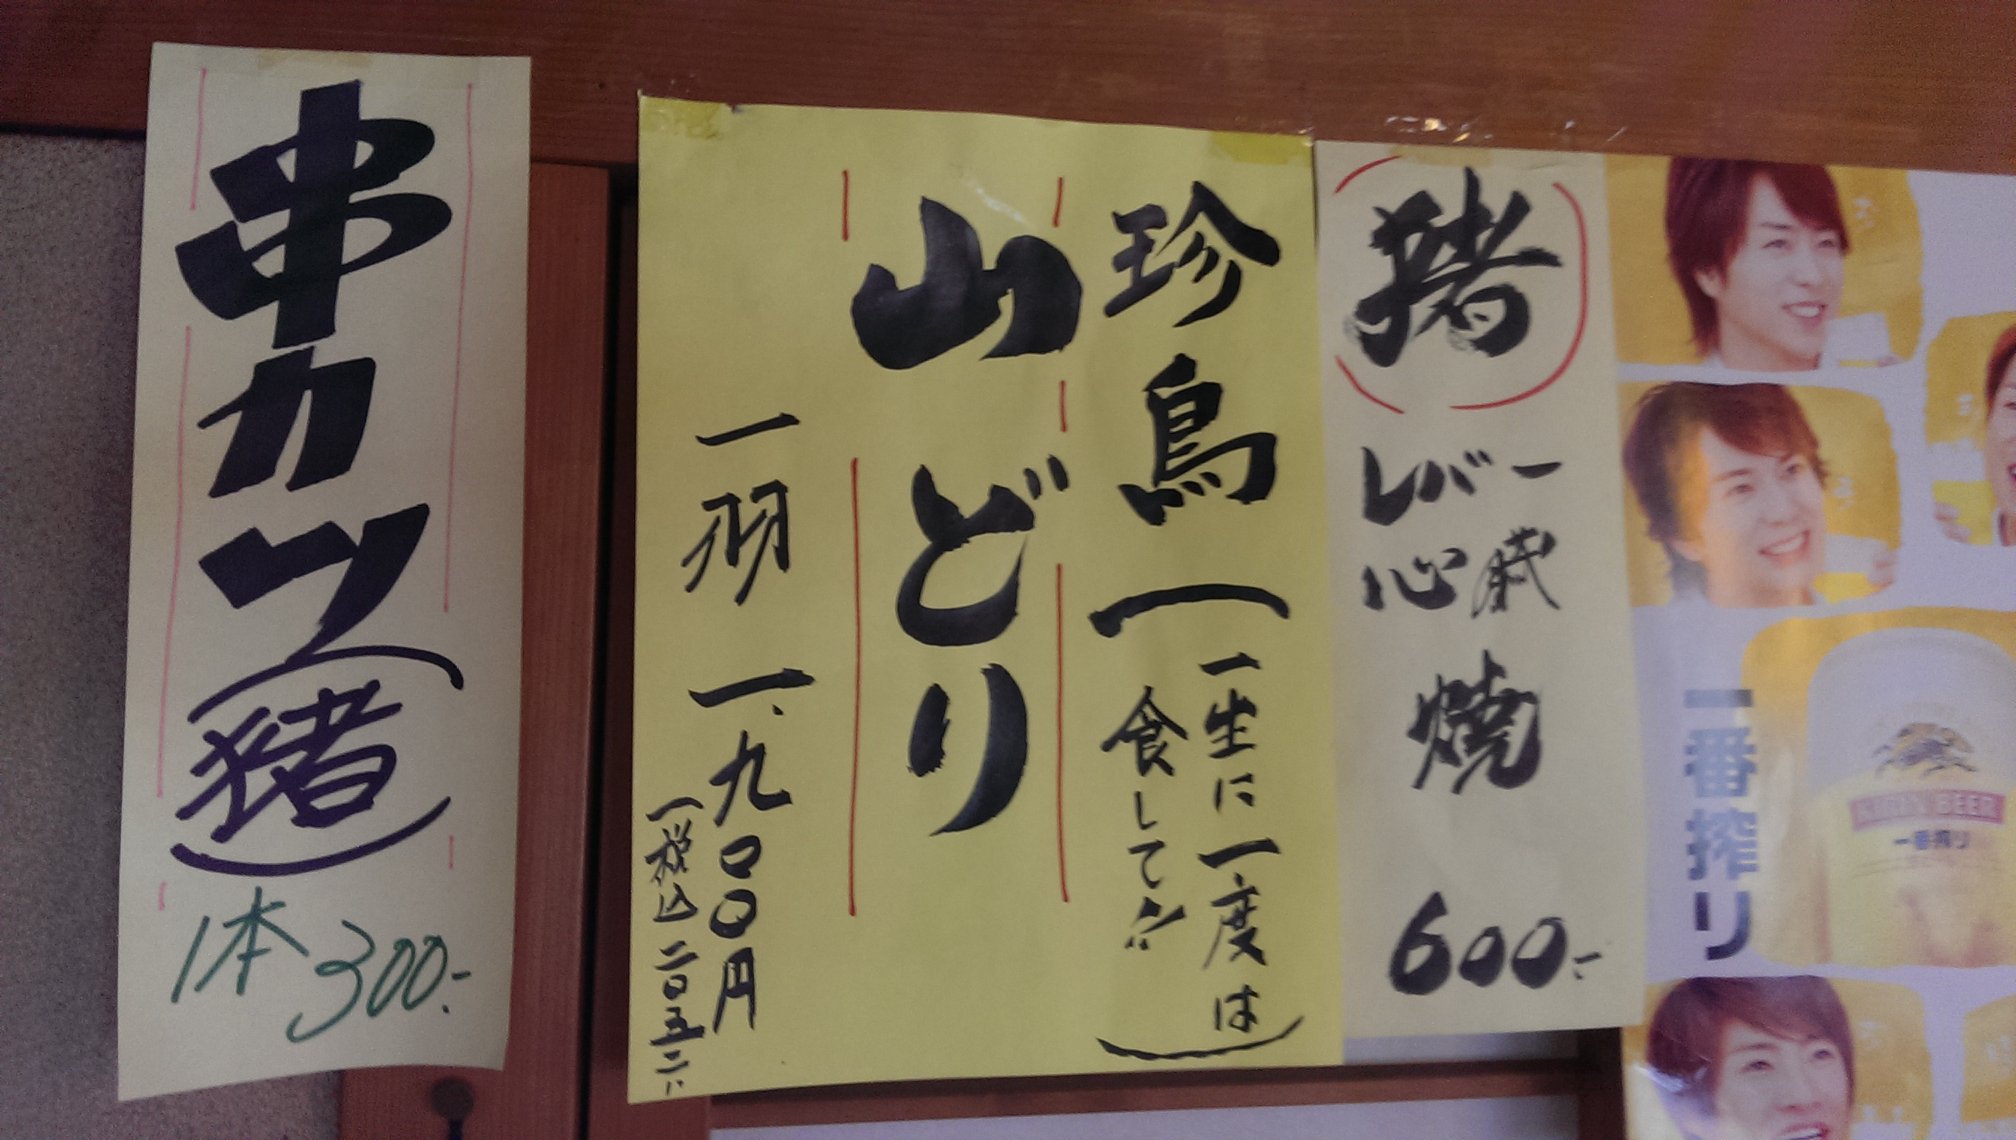 串カツ(猪)
1本 300.-
珍鳥(一生に一度は
食して!!)
山どり
一羽 一、九〇〇円
(税込二〇五二.-
(猪)
レバー
心臓
焼
600.-
一番搾り
KIRIN BEER
一番搾り